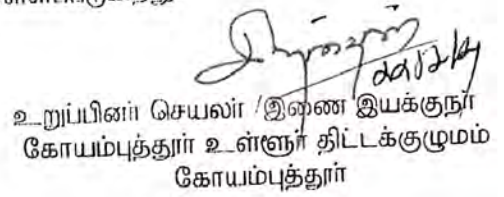 உறுப்பினர் செயலர் / இணை இயக்குநர்
கோயம்புத்தூர் உள்ளூர் திட்டக்குழுமம்
கோயம்புத்தூர்